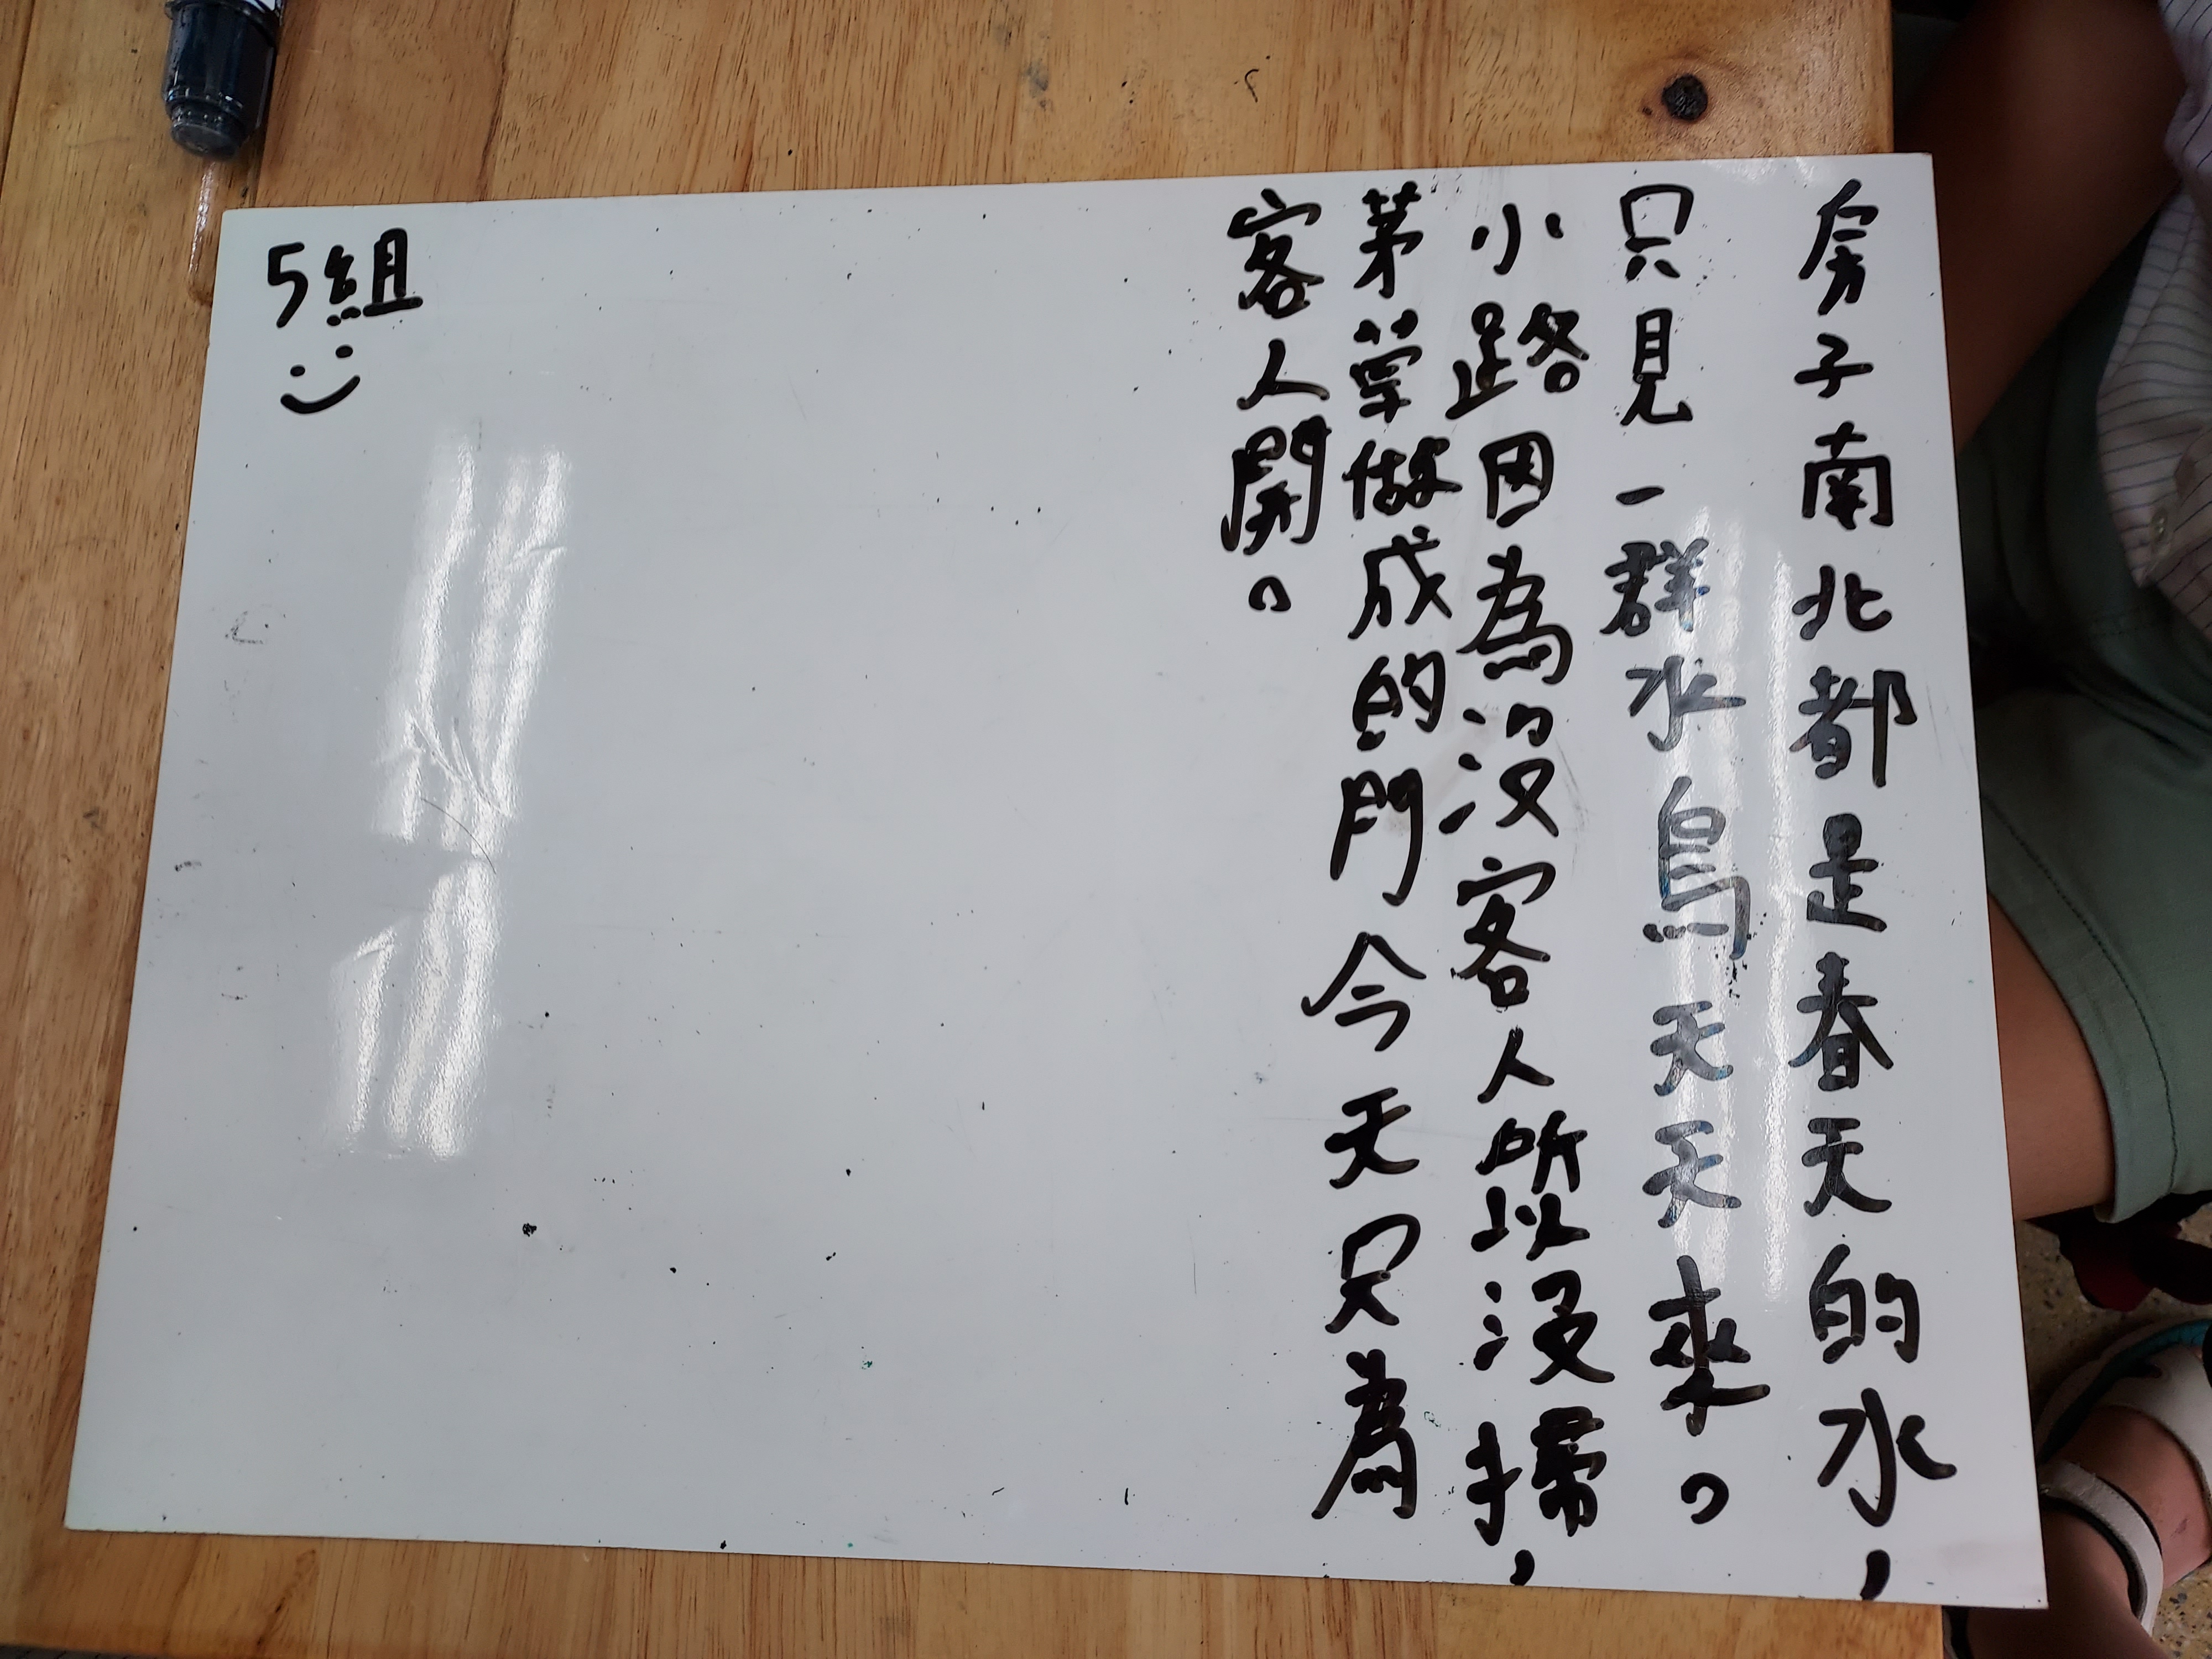 房子南北都是春天的水，
只見一群水鳥天天來。
小路因為沒客人所以沒掃，
茅草做成的門今天只為
客人開。
5組
:)